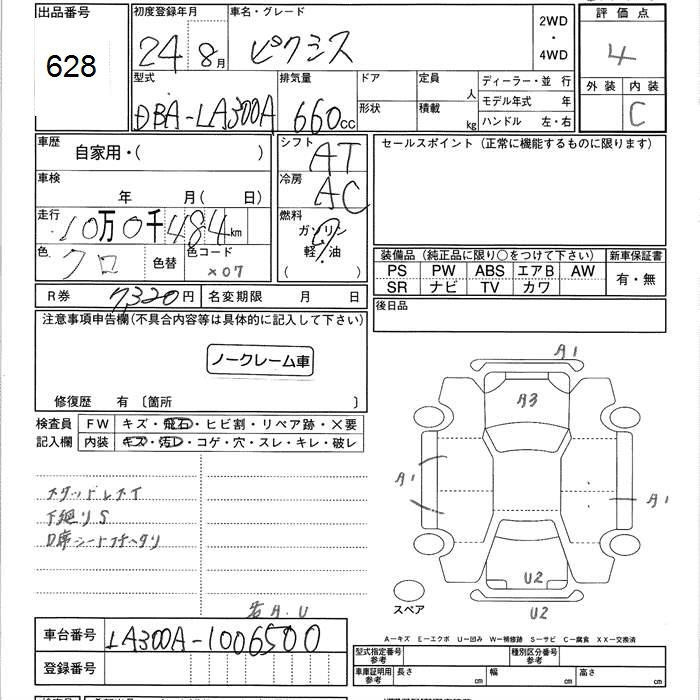 出品番号 初度登録年月 車名・グレード 2WD・4WD 評価点
628 24年8月 ピクシス 4
型式 排気量 ドア 定員 人 ディーラー・並 行 外装 内装
DBA-LA300A 660cc 形状 積載 kg モデル年式 年 C
ハンドル 左・右
車歴 自家用・( ) シフト AT セールスポイント(正常に機能するものに限ります)
車検 年 月( 日) 冷房 AC
走行 10万0千484km 燃料 ガソリン
軽・油
( )
色 クロ 色替 色コード X07
装備品(純正品に限り○をつけて下さい) 新車保証書
PS PW ABS エアB AW 有・無
SR ナビ TV カワ
R券 7320円 名変期限 月 日 後日品
注意事項申告欄(不具合内容等は具体的に記入して下さい)
ノークレーム車
修復歴 有 〔箇所 〕
検査員 FW キズ・飛石・ヒビ割・リペア跡・×要
記入欄 内装 キズ・汚レ・コゲ・穴・スレ・キレ・破レ
A1
A3
A1
A1
スタッドレスタイ
下廻りS
D席シート
U2
スペア U2
若A.U
車台番号 LA300A-1006500
登録番号
A―キズ E―エクボ U―凹み W―補修跡 S―サビ C―腐食 XX―交換済
型式指定番号 参考 種別区分番号 参考
車庫証明用 参考 長さ cm 幅 cm 高さ cm